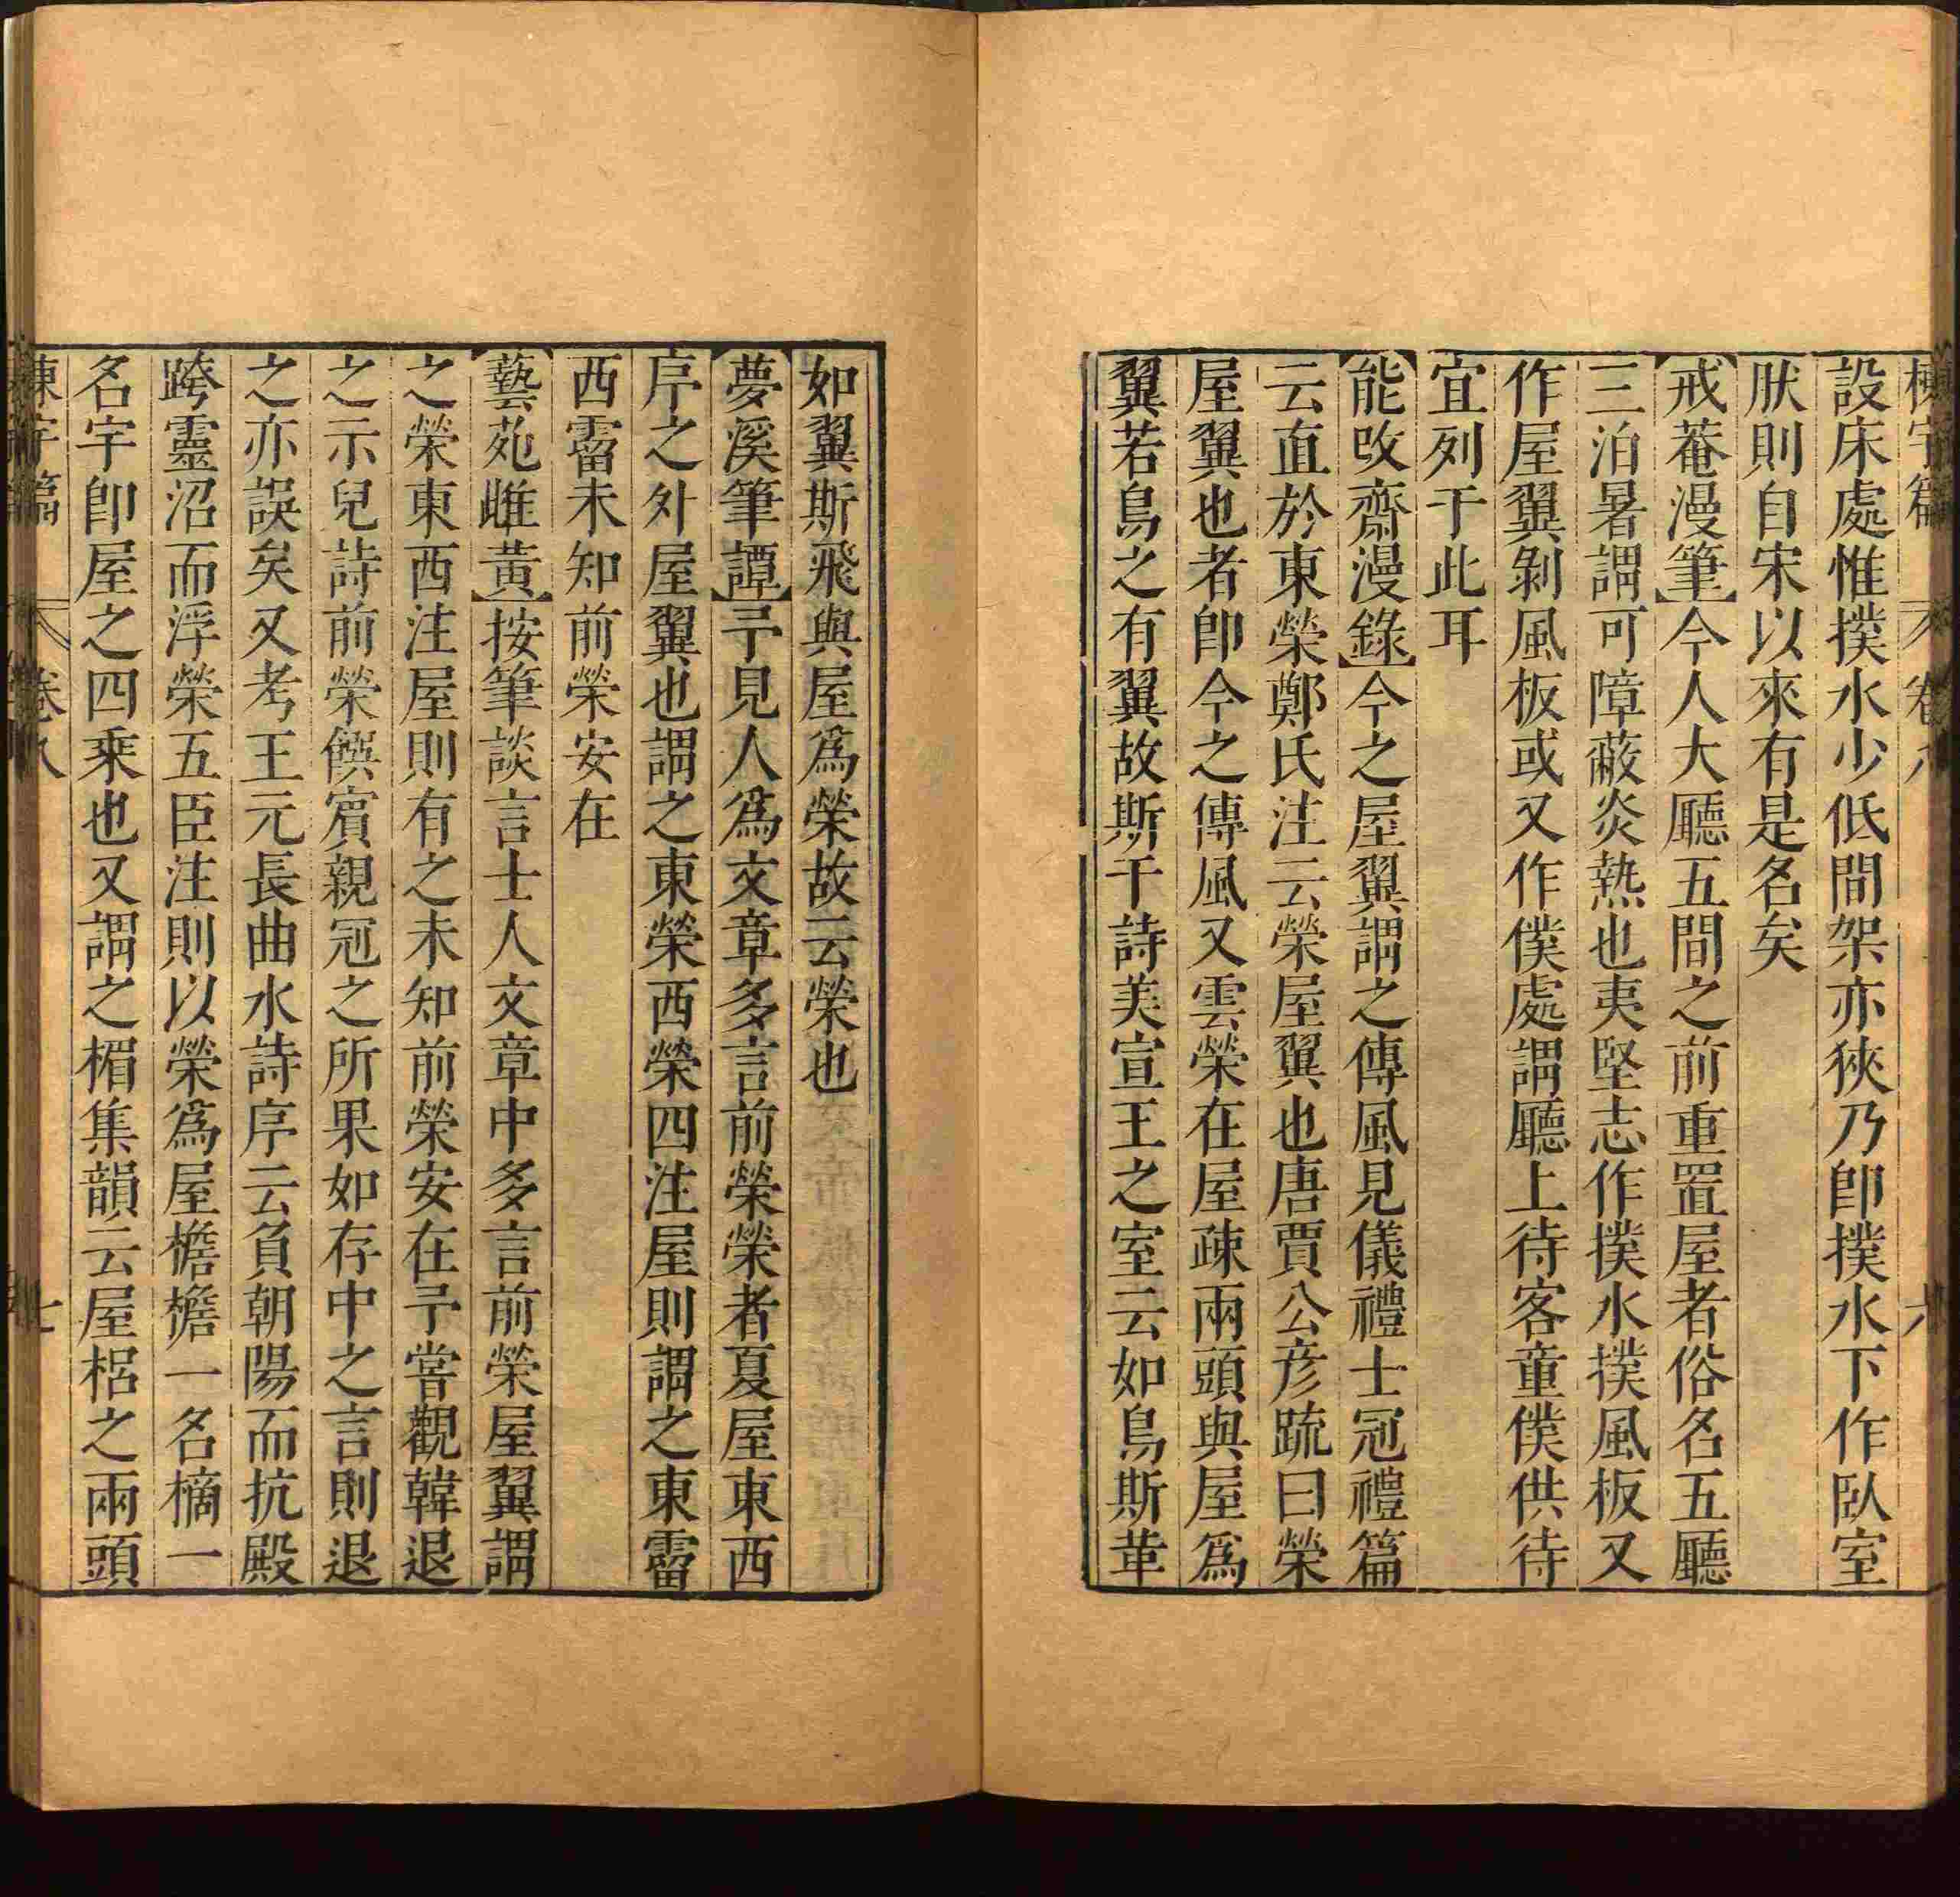 棟宇篇 卷八 六
設床處惟撲水少低間架亦狹乃卽撲水下作臥室
肰則自宋以來有是名矣
【戒菴漫筆】今人大廳五間之前重置屋者俗名五廳
三泊暑謂可障蔽炎熱也夷堅志作撲水撲風板又
作屋翼剝風板或又作僕處謂廳上待客童僕供待
宜列于此耳
【能攺齋漫錄】今之屋翼謂之傳風見儀禮士冠禮篇
云直於東榮鄭氏注云榮屋翼也唐賈公彥疏曰榮
屋翼也者卽今之傳風又雲榮在屋疎兩頭與屋爲
翼若鳥之有翼故斯干詩美宣王之室云如鳥斯革
如翼斯飛與屋爲榮故云榮也
【夢溪筆譚】予見人爲文章多言前榮榮者夏屋東西
序之外屋翼也謂之東榮西榮四注屋則謂之東霤
西霤未知前榮安在
【藝苑雌黃】按筆談言士人文章中多言前榮屋翼謂
之榮東西注屋則有之未知前榮安在予嘗觀韓退
之示兒詩前榮饌賓親冠之所果如存中之言則退
之亦誤矣又考王元長曲水詩序云負朝陽而抗殿
跨靈沼而浮榮五臣注則以榮爲屋檐檐一名樀一
名宇卽屋之四乘也又謂之楣集韻云屋梠之兩頭
棟宇篇 卷八 七